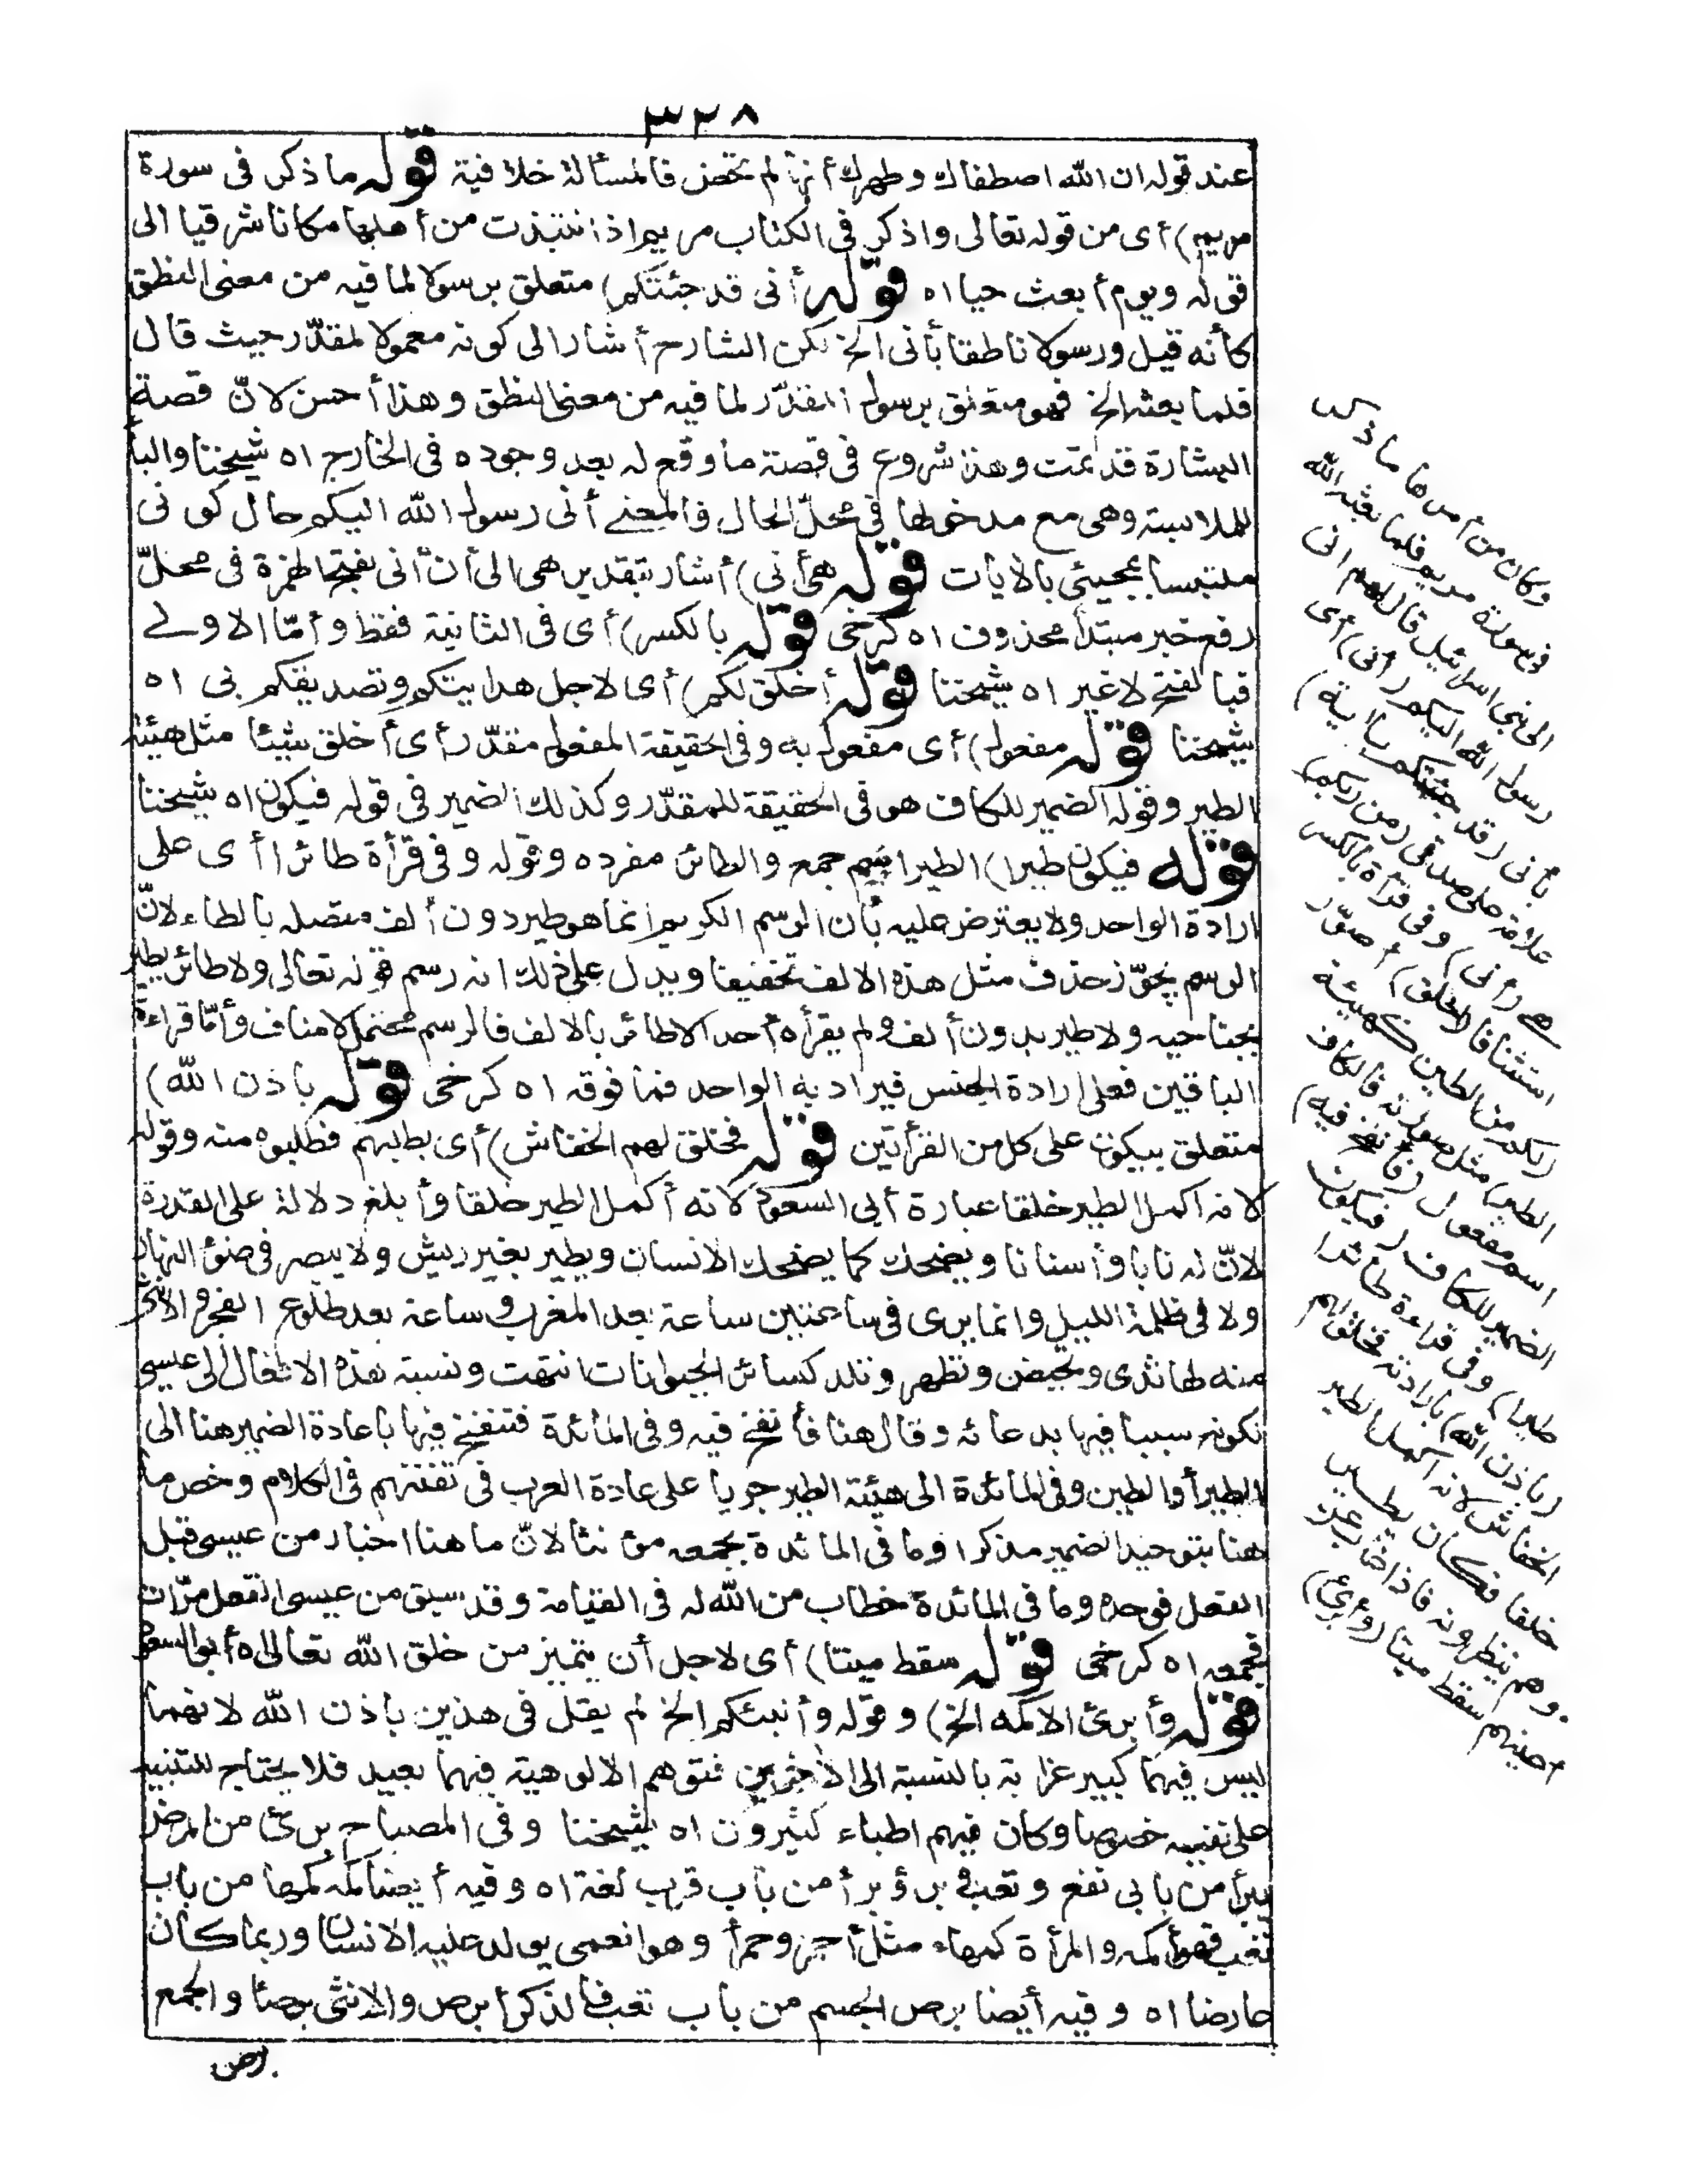 ٣٢٨
عند قوله ان الله اصطفاك وطهرك أنها لم تحض فالمسألة خلافية قوله ما ذكر فى سورة
مريم) أى من قوله تعالى واذكر فى الكتاب مريم اذ انتبذت من أهلها مكانا شرقيا الى
قوله ويوم أبعث حيا اه قوله أنى قد جئتكم) متعلق برسولا لما فيه من معنى النطق
كأنه قيل ورسولا ناطقا بأنى الخ لكن الشارح أشار الى كونه معمولا لمقدّر حيث قال
فلما بعثه الخ فهو متعلق برسول المقدّر لما فيه من معنى النطق وهذا أحسن لانّ قصة
البشارة قد تمت وهذا شروع فى قصة ما وقع له بعد وجوده فى الخارج اه شيخنا والبأ
للملابسة وهى مع مدخولها فى محلّ الحال فالمعنى أنى رسول الله اليكم حال كونى
ملتبسا بمجيئى بالأيات قوله هى أنى) أشار بتقدير هى الى أن أنى بفتح الهمزة فى محلّ
رفع خبر مبتدأ محذوف اه كرخى قوله بالكسر) أى فى الثانية فقط وأمّا الاولے
فبالفتح لا غير اه شيخنا قوله أخلق لكم) أى لاجل هدايتكم وتصديقكم بى اه
شيخنا قوله مفعول) أى مفعول به وفى الحقيقة المفعول مقدّر أى أخلق شيئا مثل هيئة
الطير وقوله الضمير للكاف هو فى الحقيقة للمقدّر وكذلك الضمير فى قوله فيكون اه شيخنا
قوله فيكون طيرا) الطير اسم جمع والطائر مفرده وقوله وفى قرأة طائرا أى على
ارادة الواحد ولا يعترض عليه بأن الرسم الكريم انما هو طير دون ألف متصله بالطاء لانّ
الرسم يجوّز حذف مثل هذه الالف تخفيفا ويدل على ذلك انه رسم قوله تعالى ولا طائر يطير
بجناحيه ولا طير بدون ألف ولم يقرأه أحد الا طائر بالالف فالرسم محتمل لا مناف وأمّا قراءة
الباقين فعلى ارادة الجنس فيراد به الواحد فما فوقه اه كرخى قوله باذن الله)
متعلق بيكون على كل من القرأتين قوله فخلق لهم الخفاش) أى بطلبهم فطلبوه منه وقوله
لانه اكمل الطير خلقا عبارة أبى السعود لانه أكمل الطير خلقا وأبلغ دلالة على القدرة
لانّ له نابا وأسنانا ويضحك كما يضحك الانسان ويطير بغير ريش ولا يبصر فى ضوء النهار
ولا فى ظلمة الليل وانما يرى فى ساعتين ساعة بعد المغرب وساعة بعد طلوع الفجر والانثى
منه لها ثدى وتحيض وتطهر وتلد كسائر الحيوانات انتهت ونسبة هذه الافعال الى عيسى
لكونه سببا فيها بدعائه وقال هنا فأنفخ فيه وفى المائدة فتنفخ فيها باعادة الضمير هنا الى
الطير أو الطين وفى المائدة الى هيئة الطير جريا على عادة العرب فى تفننهم فى الكلام وخص ما
هنا بتوحيد الضمير مذكرا وما فى المائدة بجمعه مؤنثا لانّ ما هنا اخبار من عيسى قبل
الفعل فوحده وما فى المائدة خطاب من الله له فى القيامة وقد سبق من عيسى الفعل مرّات
فجمعه اه كرخى قوله سقط ميتا) أى لاجل أن يتميز من خلق الله تعالى اه أبو السعود
قوله وأبرئ الاكمه الخ) وقوله وأنبئكم الخ لم يقل فى هذين باذن الله لانهما
ليس فيهما كبير غرابة بالنسبة الى الأخرين فتوهم الالوهية فيهما بعيد فلا يحتاج للتنبيه
على نفيه خصوصا وكان فيهم اطباء كثيرون اه شيخنا وفى المصباح برئ من المرض
يبرأ من بابى نفع وتعب وبرؤ برأ من باب قرب لغة اه وفيه أيضا كمه كمها من باب
تعب فهو أكمه والمرأة كمهاء مثل أحمر وحمرأ وهو العمى يولد عليه الانسان وربما كان
عارضا اه وفيه أيضا برص الجسم من باب تعب فالذكر أبرص والانثى برصا والجمع
برص
وكان من أمرها ما ذكر
فى سورة مريم فلما بعثه الله
الى بنى اسرائيل قال لهم انى
رسول الله اليكم (أنى) أى
بأنى (قد جئتكم بأية)
علامة على صدقى (من ربكم)
هى (أنى) وفى قرأة بالكسر
استئنافا (أخلق) أصوّر
(لكم من الطين كهيئة
الطير) مثل صورته فالكاف
اسم مفعول (فأنفخ فيه)
الضمير للكاف (فيكون
طيرا) وفى قراءة طائرا
(باذن الله) بارادته فخلق لهم
الخفاش لانه اكمل الطير
خلقا فكان يطير
وهم ينظرونه فاذا غاب عن
أعينهم سقط ميتا (وأبرئ)